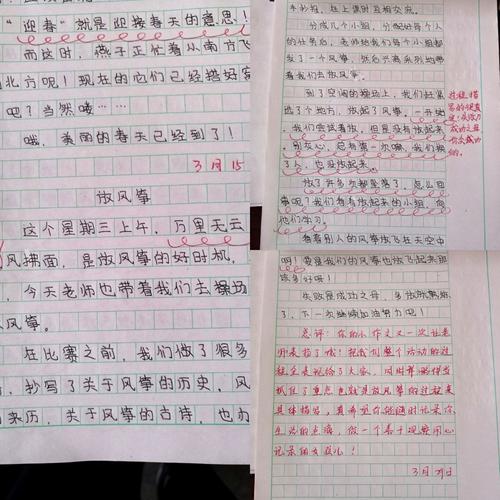 "迎春"就是迎接春天的意思!
而这时,燕子正忙着从南方飞
北方呢!现在的它们已经搭好窝
吧?当然喽……
哦,美丽的春天已经到了!
3月15
放风筝
这个星期三上午,万里无云
风拂面,是放风筝的好时机,
,今天老师也带着我们去操场
风筝。
在比赛之前,我们做了很多
,抄写了关于风筝的历史,风
来历,关于风筝的古诗,也办
手抄报,还上课时互相交流。
分成几个小组,分配好每个人
的任务后,老师给我们每个小组都
发了一个风筝,然后兴高采烈地带
着我们去放风筝。
到了空阔的操场上,我们赶紧
选了个地方,放起了风筝。一开始
,我们尝试着放,但是没有放起来。
别灰心,总有第一次嘛,我们换
了人,也没放起来。
放了许多次都坠落了,怎么回
事呢?我们看有放起来的小组,向
他们学习。
看着别人的风筝放飞在天空中
过程描
写的很真
实!失败乃
成功之母
你会成功
的。
啊!要是我们的风筝也放飞起来那
该多好呀!
失败是成功之母,多放就熟练
了,下一次继续加油努力吧!
总评:你的小作文又一次让老
师惊艳了哦!把我们整个活动的过
程呈现给了大家,同时
抓住了重点也就是放风筝的过程来
具体描写,真希望你能随时记录你
生活的点滴,做一个善于观察用心
记录的女孩儿!
3月29日